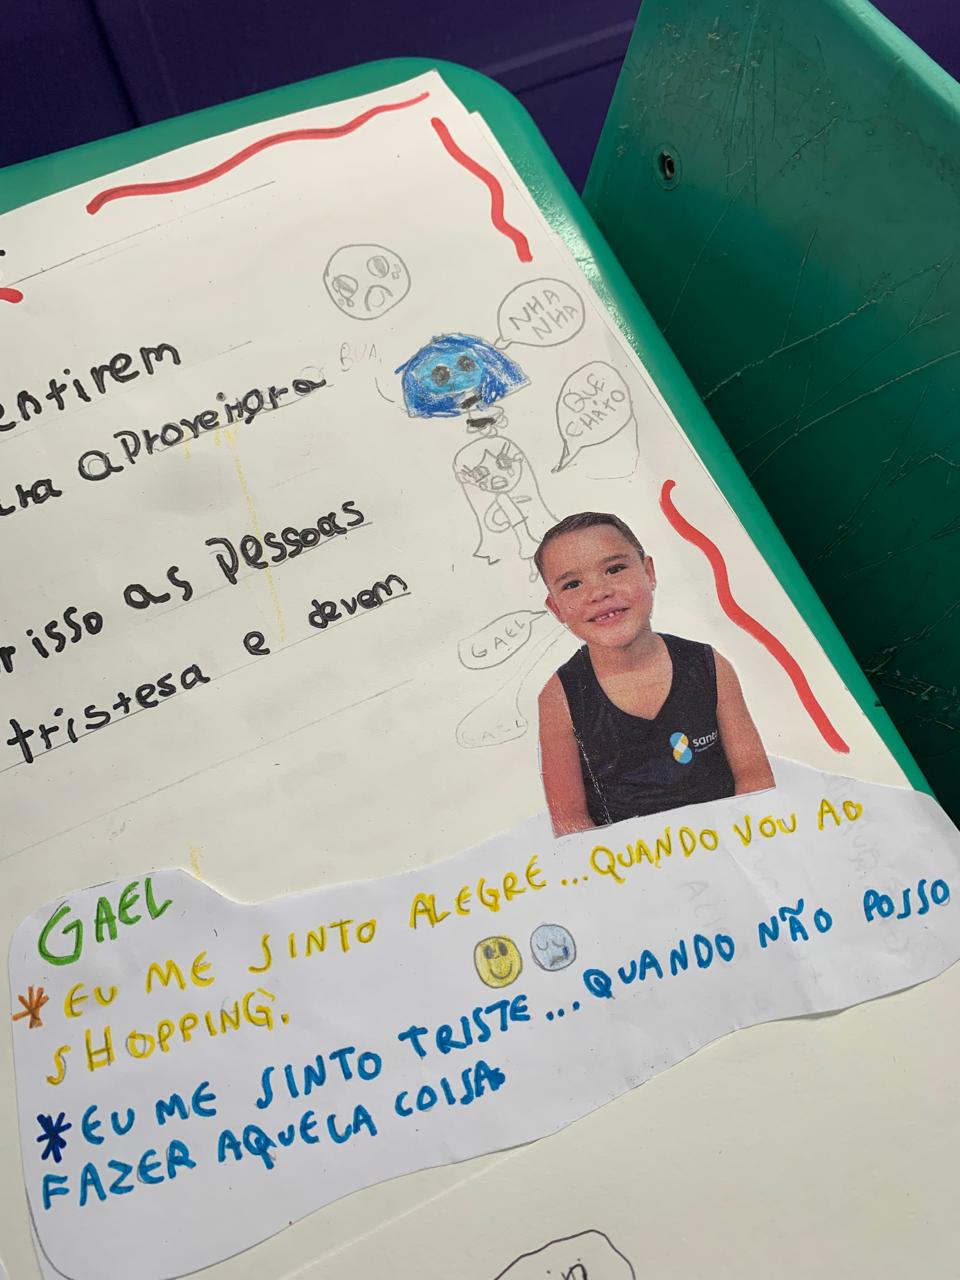 NHA
NHA
BUA
entirem
QUE
CHATO
ra aproveitara
r isso as Pessoas
tristesa e devem
GAEL
GAEL
sanc
GAEL
* EU ME SINTO ALEGRE... QUANDO VOU AO
SHOPPING.
* EU ME SINTO TRISTE... QUANDO NÃO POSSO
FAZER AQUELA COISA